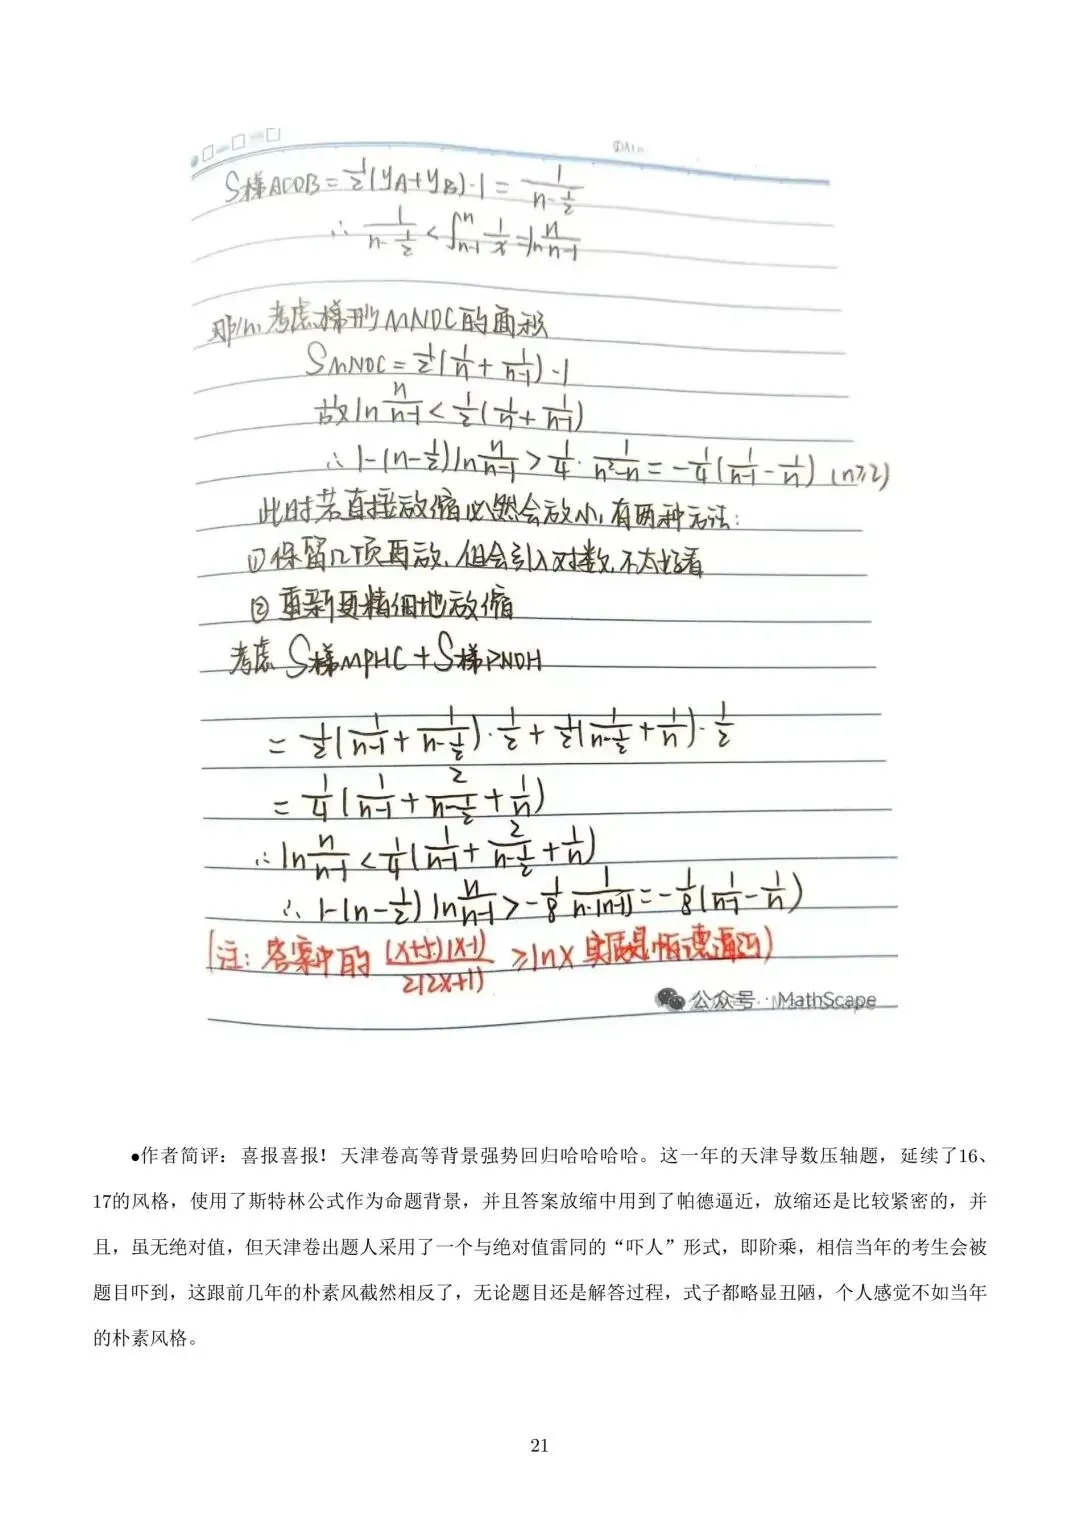 S梯ACDB = 1/2(yA+yB)·1 = 1/(n-1/2)
∴ 1/(n-1/2) < ∫_{n-1}^{n} 1/x = ln n/(n-1)
考虑梯形MNDC的面积
SMNDC = 1/2(1/n + 1/(n-1))·1
故 ln n/(n-1) < 1/2(1/n + 1/(n-1))
∴ 1-(n-1/2)ln n/(n-1) > 1/4 · 1/(n²-n) = -1/4(1/(n-1) - 1/n) (n≥2)
此时若直接放缩必然会放小,有两种方法:
① 保留几项再放,但会引入对数,不太好看
② 重新更精细地放缩
考虑 S梯MPHC + S梯PNDH
= 1/2(1/(n-1) + 1/(n-1/2))·1/2 + 1/2(1/(n-1/2) + 1/n)·1/2
= 1/4(1/(n-1) + 2/(n-1/2) + 1/n)
∴ ln n/(n-1) < 1/4(1/(n-1) + 2/(n-1/2) + 1/n)
∴ 1-(n-1/2)ln n/(n-1) > -1/8 · 1/(n·(n-1)) = -1/8(1/(n-1) - 1/n)
(注: 答案中的 (x+5)(x-1)/(2(2x+1)) ≥ ln x 实质是帕德逼近)
公众号 · MathScape
●作者简评：喜报喜报！天津卷高等背景强势回归哈哈哈哈。这一年的天津导数压轴题，延续了16、
17的风格，使用了斯特林公式作为命题背景，并且答案放缩中用到了帕德逼近，放缩还是比较紧密的，并
且，虽无绝对值，但天津卷出题人采用了一个与绝对值雷同的“吓人”形式，即阶乘，相信当年的考生会被
题目吓到，这跟前几年的朴素风截然相反了，无论题目还是解答过程，式子都略显丑陋，个人感觉不如当年
的朴素风格。
21